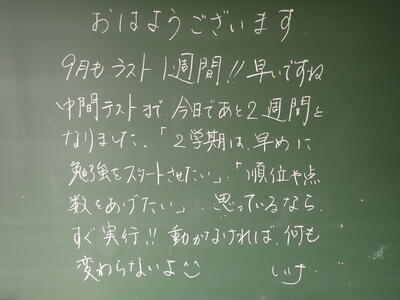 おはようございます
9月も、ラスト1週間!!早いですね
中間テストまで、今日であと2週間と
なりました。「2学期は、早めに
勉強をスタートさせたい」、「順位や点
数をあげたい」 思っているなら、
すぐ実行!! 動かなければ、何も
変わらないよ